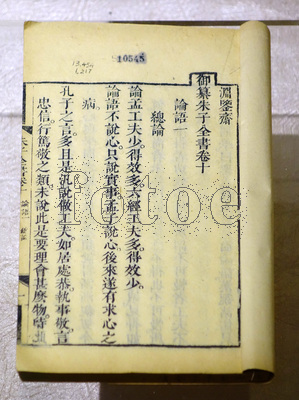 淵鑒齋
御纂朱子全書卷十
論語一
總論
論孟工夫少得效多六經工夫多得效少
論語不說心只說實事孟子說心後來遂有求心之
病
孔子之言多且是汎說做工夫如居處恭執事敬言
忠信行篤敬之類未說此是要理會甚麽物
10548
fotoe